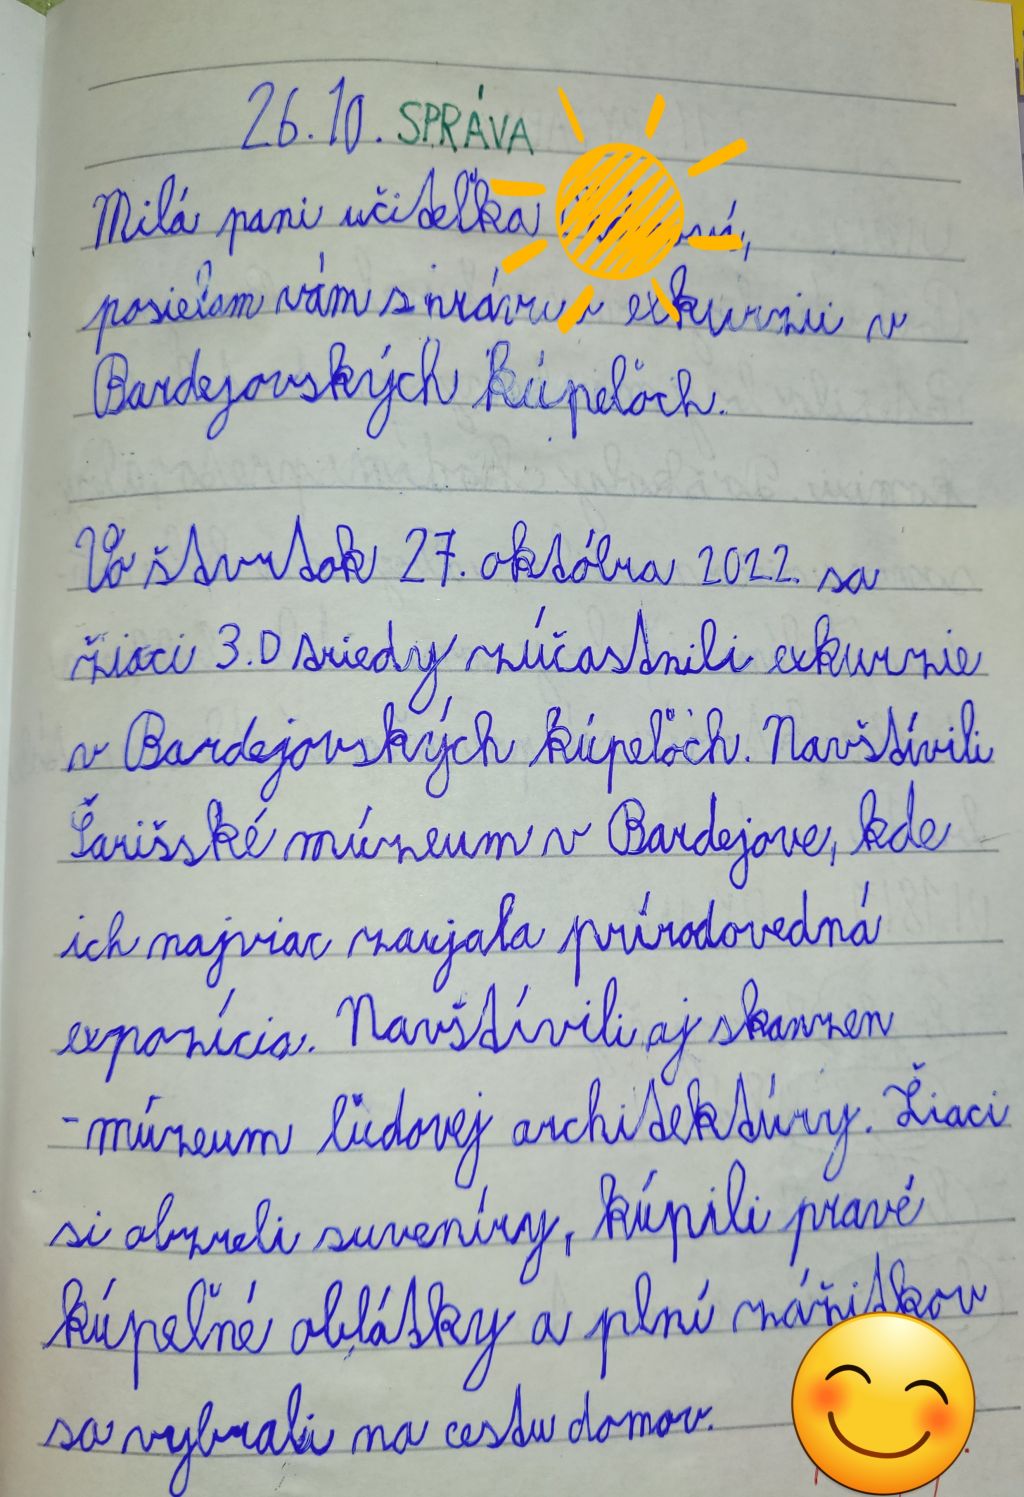 26.10. SPRÁVA
Milá pani učiteľka
posielam vám správu o exkurzii v
Bardejovských kúpeľoch.
Vo štvrtok 27. októbra 2022 sa
žiaci 3.D triedy zúčastnili exkurzie
v Bardejovských kúpeľoch. Navštívili
Šarišské múzeum v Bardejove, kde
ich najviac zaujala prírodovedná
expozícia. Navštívili aj skanzen
- múzeum ľudovej architektúry. Žiaci
si obzreli suveníry, kúpili pravé
kúpeľné oblátky a plní zážitkov
sa vybrali na cestu domov.